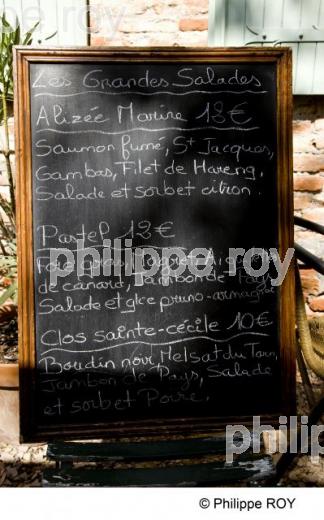 Les Grandes Salades
Alizée Marine 13€
Saumon fumé, St Jacques,
Gambas, Filet de Hareng,
Salade et sorbet citron.
Pastel 13€
Foie gras, Magret,
de canard, Jambon de Pays
Salade et glce pruno-armagnac
Clos sainte-cécile 10€
Boudin noir, Melsat du Tarn,
Jambon de Pays, Salade
et sorbet Poire.
philippe roy
philippe roy
© Philippe ROY